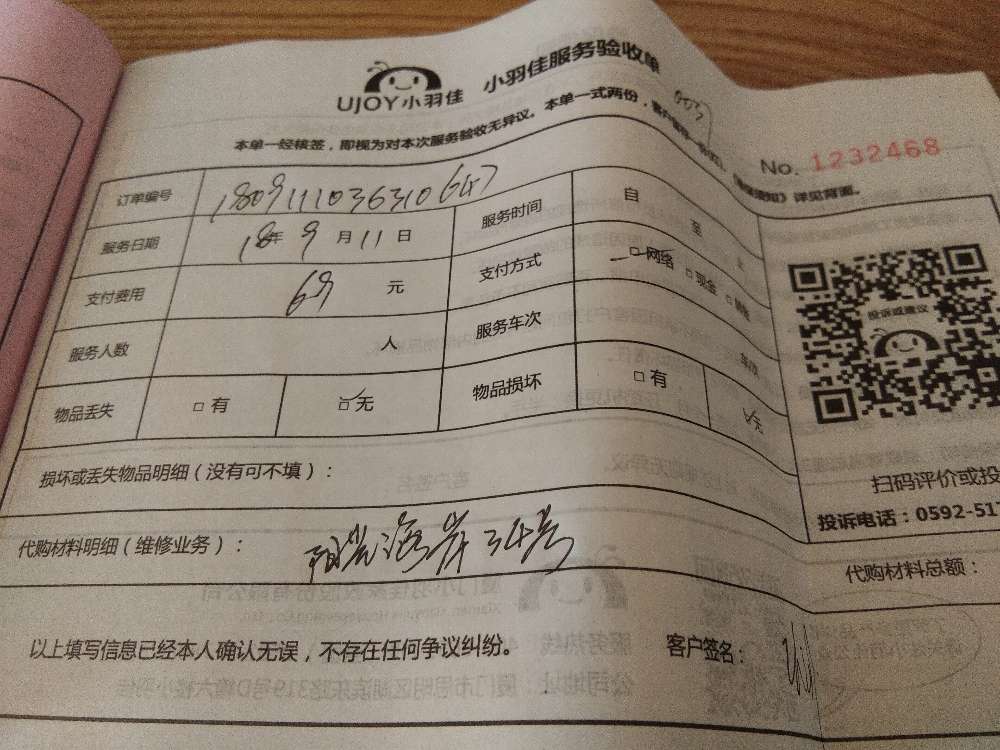 UJOY小羽佳 小羽佳服务验收单
本单一经核签，即视为对本次服务验收无异议。本单一式两份，
详见背面。
No. 1232468
订单编号 1809111036310647
服务时间 自 至
服务日期 18年 9月 11日
支付方式 □网络 □现金
支付费用 69 元
服务人数 人 服务车次
物品丢失 □有 □无 物品损坏 □有 □无
投诉或建议
损坏或丢失物品明细（没有可不填）：
扫码评价或投
投诉电话：0592-517
代购材料明细（维修业务）： 海岸34号
代购材料总额：
以上填写信息已经本人确认无误，不存在任何争议纠纷。 客户签名：